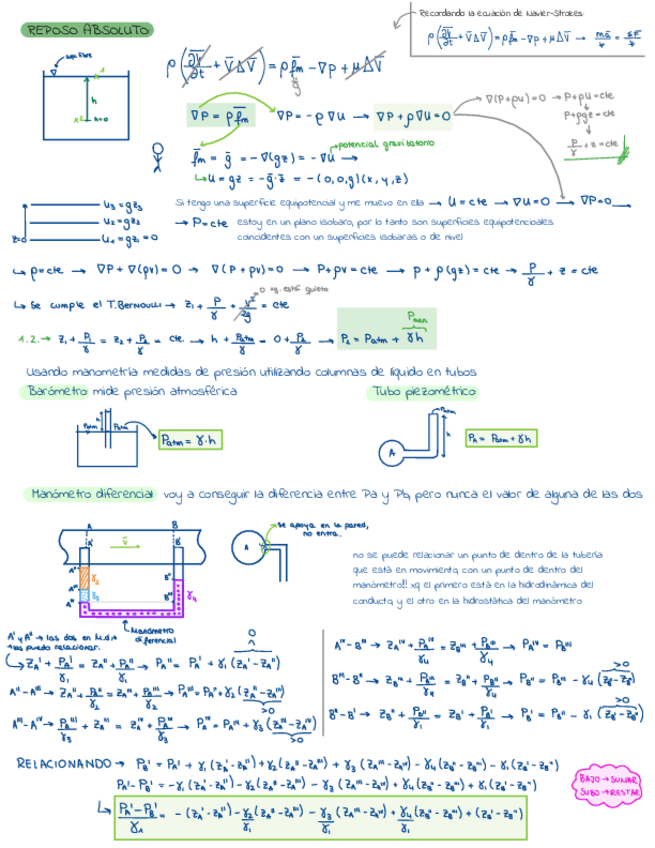 Recordando la ecuación de Navier-Stokes
REPOSO ABSOLUTO:
ρ(∂V̄/∂t + V̄ΔV̄) = ρf̄m - ∇p + μΔV̄ →
sup. libre
ρ(∂V̄/∂t + V̄ΔV̄) = ρf̄m - ∇p + μΔV̄
h
∇P = ρf̄m ∇P = -ρ∇U → ∇P + ρ∇U = 0
∇(P+ρU) = 0 → P+ρU = cte
P+ρgz = cte
P/γ + z = cte
potencial gravitatorio
f̄m = ḡ = -∇(gz) = -∇U →
↳ U = gz = -ḡ·z̄ = -(0,0,g)(x,y,z)
U3 = gz3
U2 = gz2
z=0 U1 = gz1 = 0
Si tengo una superficie equipotencial y me muevo en ella → U = cte → ∇U = 0 → ∇P = 0
→ P = cte estoy en un plano isobaro, por lo tanto son superficies equipotenciales
coincidentes con un superficies isobaras o de nivel
↳ ρ = cte → ∇P + ∇(ρU) = 0 → ∇(P + ρU) = 0 → P + ρU = cte → p + ρ(gz) = cte → P/γ + z = cte
↳ Se cumple el T. BERNOULLI → z1 + P/γ + V²/2g = cte
1.2. → z1 + P1/γ = z2 + P2/γ = cte. → h + Patm/γ = 0 + P2/γ → P2 = Patm + γh
Pman
Usando manometría medidas de presión utilizando columnas de líquido en tubos
Barómetro: mide presión atmosférica
Tubo piezométrico:
Patm Patm
Patm = γ·h
Patm
h
A
PA = Patm + γh
Manómetro diferencial: voy a conseguir la diferencia entre Pa y Pb, pero nunca el valor de alguna de las dos
A B
se apoya en la pared,
no entra.
A
no se puede relacionar un punto de dentro de la tubería
que está en movimiento, con un punto de dentro del
manómetro!! xq el primero está en la hidrodinámica del
conducto, y el otro en la hidrostática del manómetro
Manómetro
diferencial
se puedo relacionar.
ZA' + PA'/γ1 = ZA'' + PA''/γ1 → PA'' = PA' + γ1(ZA' - ZA'')
A''-A''' → ZA'' + PA''/γ2 = ZA''' + PA'''/γ2 → PA''' = PA'' + γ2(ZA'' - ZA''')
>0
A'''-Aᴵⱽ → PA'''/γ3 + ZA''' = ZAᴵⱽ + PAᴵⱽ/γ3 → PAᴵⱽ = PA''' + γ3(ZA''' - ZAᴵⱽ)
>0
Aᴵⱽ-B''' → ZAᴵⱽ + PAᴵⱽ/γ4 = ZB''' + PB'''/γ4 → PAᴵⱽ = PB'''
>0
B'''-B'' → ZB''' + PB'''/γ4 = ZB'' + PB''/γ4 → PB'' = PB''' - γ4(ZB''-ZB''')
>0
B''-B' → ZB'' + PB''/γ1 = ZB' + PB'/γ1 → PB' = PB'' - γ1(ZB'-ZB'')
RELACIONANDO → PB' = PA' + γ1(ZA'-ZA'') + γ2(ZA''-ZA''') + γ3(ZA'''-ZAᴵⱽ) - γ4(ZB''-ZB''') - γ1(ZB'-ZB'')
PA'-PB' = -γ1(ZA'-ZA'') - γ2(ZA''-ZA''') - γ3(ZA'''-ZAᴵⱽ) + γ4(ZB''-ZB''') + γ1(ZB'-ZB'')
↳ (PA'-PB')/γ1 = -(ZA'-ZA'') - γ2/γ1(ZA''-ZA''') - γ3/γ1(ZA'''-ZAᴵⱽ) + γ4/γ1(ZB''-ZB''') + (ZB'-ZB'')
BAJO → SUMAR
SUBO → RESTAR